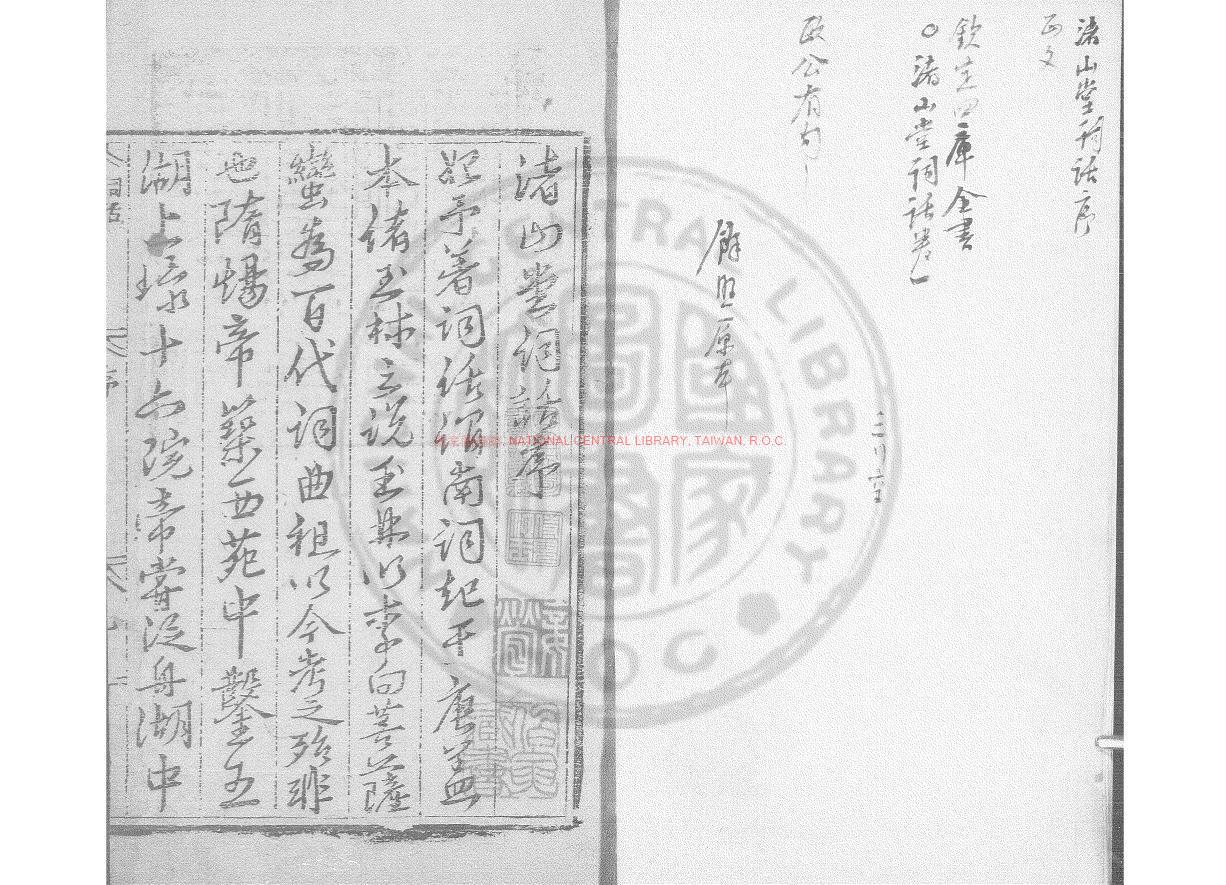 渚山堂詞話序
正文
欽定四庫全書
○渚山堂詞話卷一
歐公有句
餘照原本
渚山堂詞話序
始予著詞話謂南詞起于唐蓋
本諸玉林之說至其以李白菩薩
蠻為百代詞曲祖以今考之殆非
也隋煬帝築西苑中鑿五
湖上環十六院帝嘗泛舟湖中
詞話
序
NATIONAL CENTRAL LIBRARY, TAIWAN, R.O.C.
CENTRAL LIBRARY
R O C
國家圖書